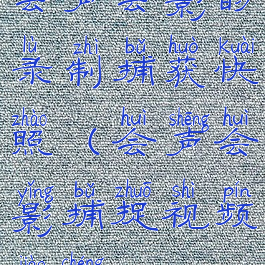 lù zhì bǔ huò kuài
录制捕获快
zhào huì shēng huì
照（会声会
yǐng bǔ zhuō shì pín
影捕捉视频